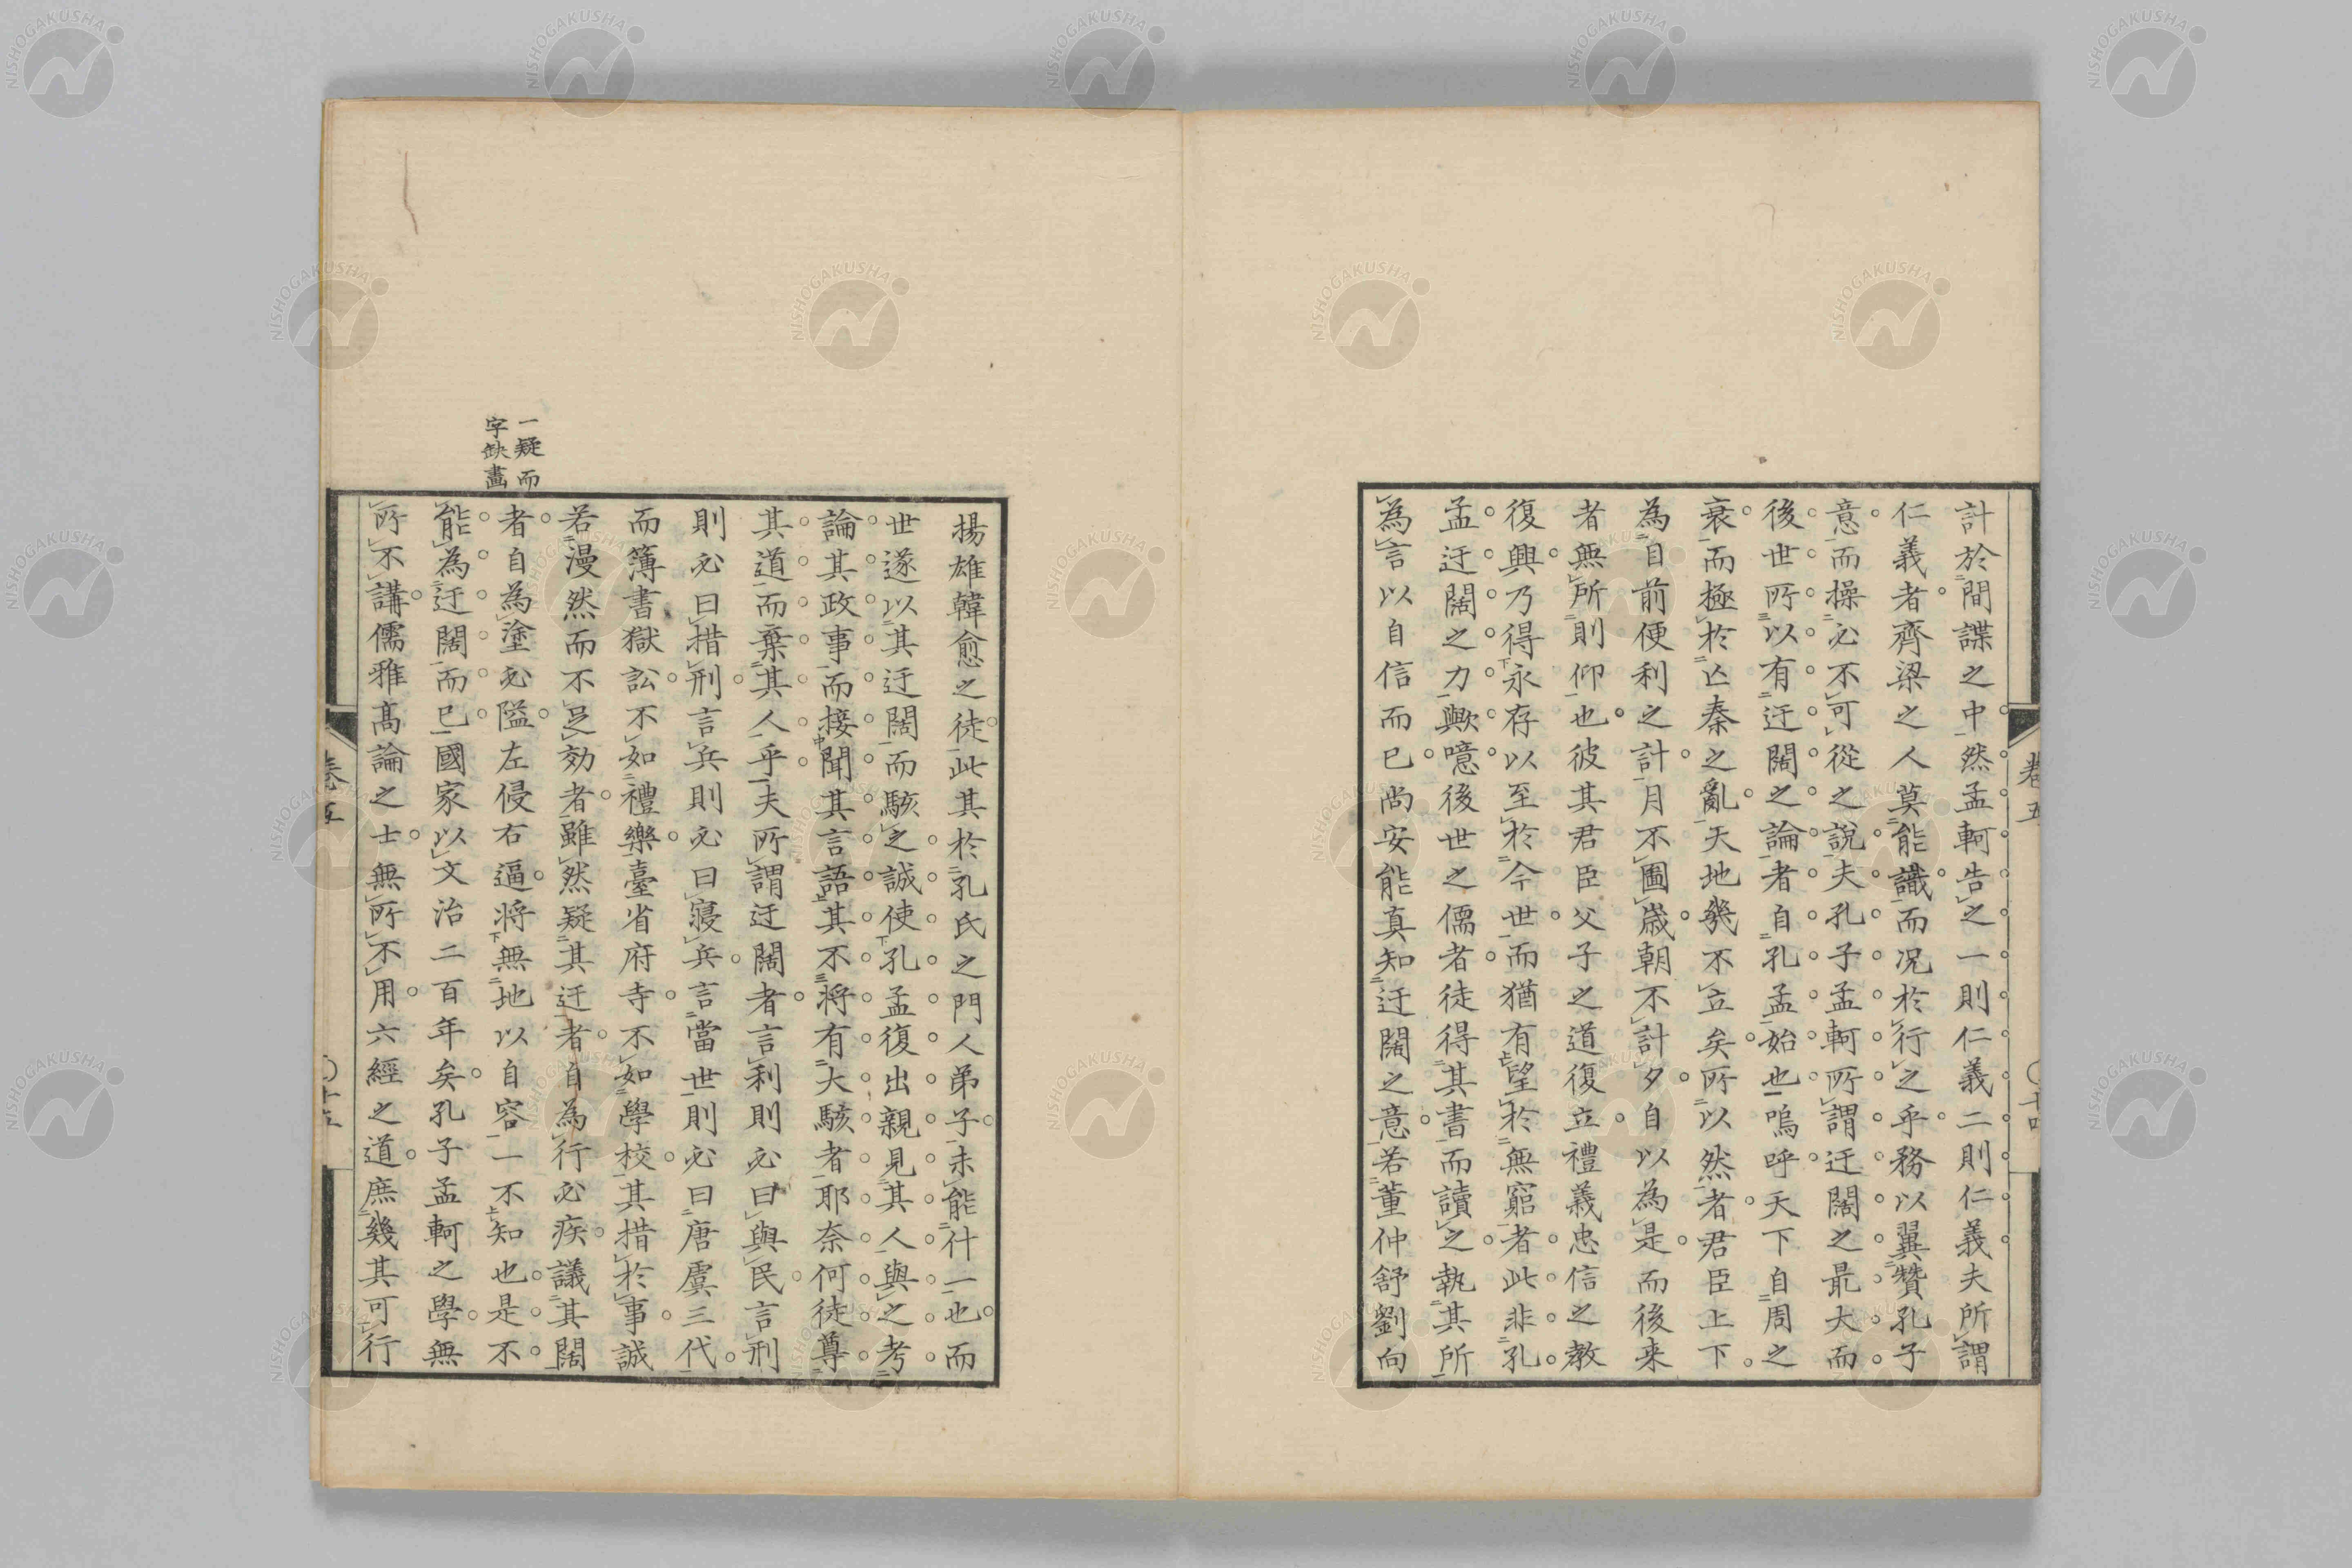 計於間諜之中然孟軻告之一則仁義二則仁義夫所謂
仁義者齊梁之人莫能識而况於行之乎務以翼贊孔子
意而操必不可從之說夫孔子孟軻所謂迂闊之最大而
後世所以有迂闊之論者自孔孟始也嗚呼天下自周之
衰而極於亾秦之亂天地幾不立矣所以然者君臣上下
為自前便利之計月不圖歲朝不計夕自以為是而後来
者無所則仰也彼其君臣父子之道復立禮義忠信之教
復興乃得永存以至於今世而猶有望於無窮者此非孔
孟迂闊之力歟噫後世之儒者徒得其書而讀之執其所
為言以自信而已尚安能真知迂闊之意若董仲舒劉向
卷五
揚雄韓愈之徒此其於孔氏之門人弟子未能什一也而
世遂以其迂闊而駭之誠使孔孟復出親見其人與之考
論其政事而接聞其言語其不將有大駭者耶奈何徒尊
其道而棄其人乎夫所謂迂闊者言利則必曰與民言刑
則必曰措刑言兵則必曰寢兵言當世則必曰唐虞三代
而簿書獄訟不如禮樂臺省府寺不如學校其措於事誠
若漫然而不足効者雖然疑其迂者自為行必疾議其闊
者自為塗必隘左侵右逼将無地以自容一不知也是不
能為迂闊而已國家以文治二百年矣孔子孟軻之學無
所不講儒雅高論之士無所不用六經之道庶幾其可行
一疑而
字缺畫
卷五
十五
NISHOGAKUSHA